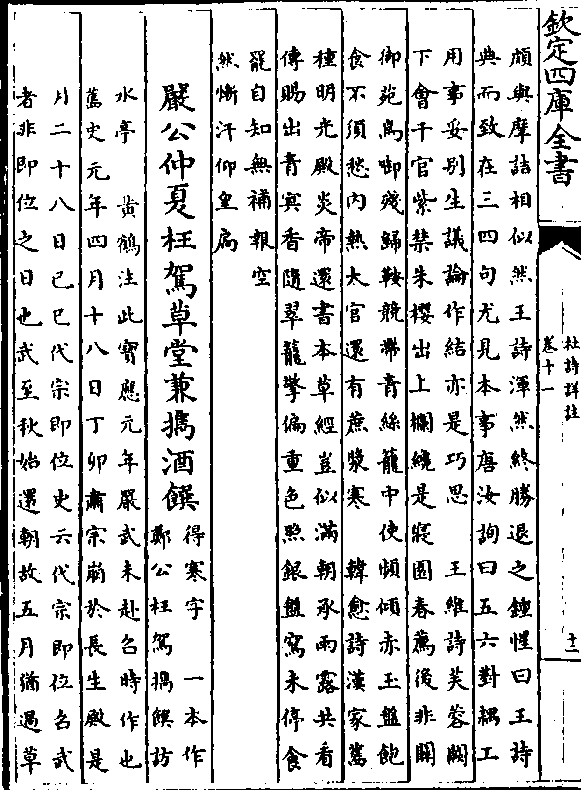 欽定四庫全書
杜詩詳註
卷十一
十二
頗與摩詰相似然王詩渾然終勝退之鍾惺曰王詩
典而致在三四句尤見本事唐汝詢曰五六對耦工
用事妥别生議論作結亦是巧思　王維詩芙蓉闕
下會千官紫禁朱櫻出上欄纔是寢園春薦後非關
御苑鳥啣殘歸鞍競帶青絲籠中使頻傾赤玉盤飽
食不須愁内熱大官還有蔗漿寒　韓愈詩漢家舊
種明光殿炎帝還書本草經豈似滿朝承雨露共看
傳賜出青冥香隨翠籠擎偏重色照銀盤寫未停食
罷自知無補報空
然慚汗仰皇扃
嚴公仲夏枉駕草堂兼攜酒饌
得寒字　一本作
鄭公枉駕攜饌訪
水亭　黄鶴注此寶應元年嚴武未赴召時作也
舊史元年四月十八日丁卯肅宗崩於長生殿是
月二十八日己巳代宗即位史云代宗即位召武
者非即位之日也武至秋始還朝故五月猶過草